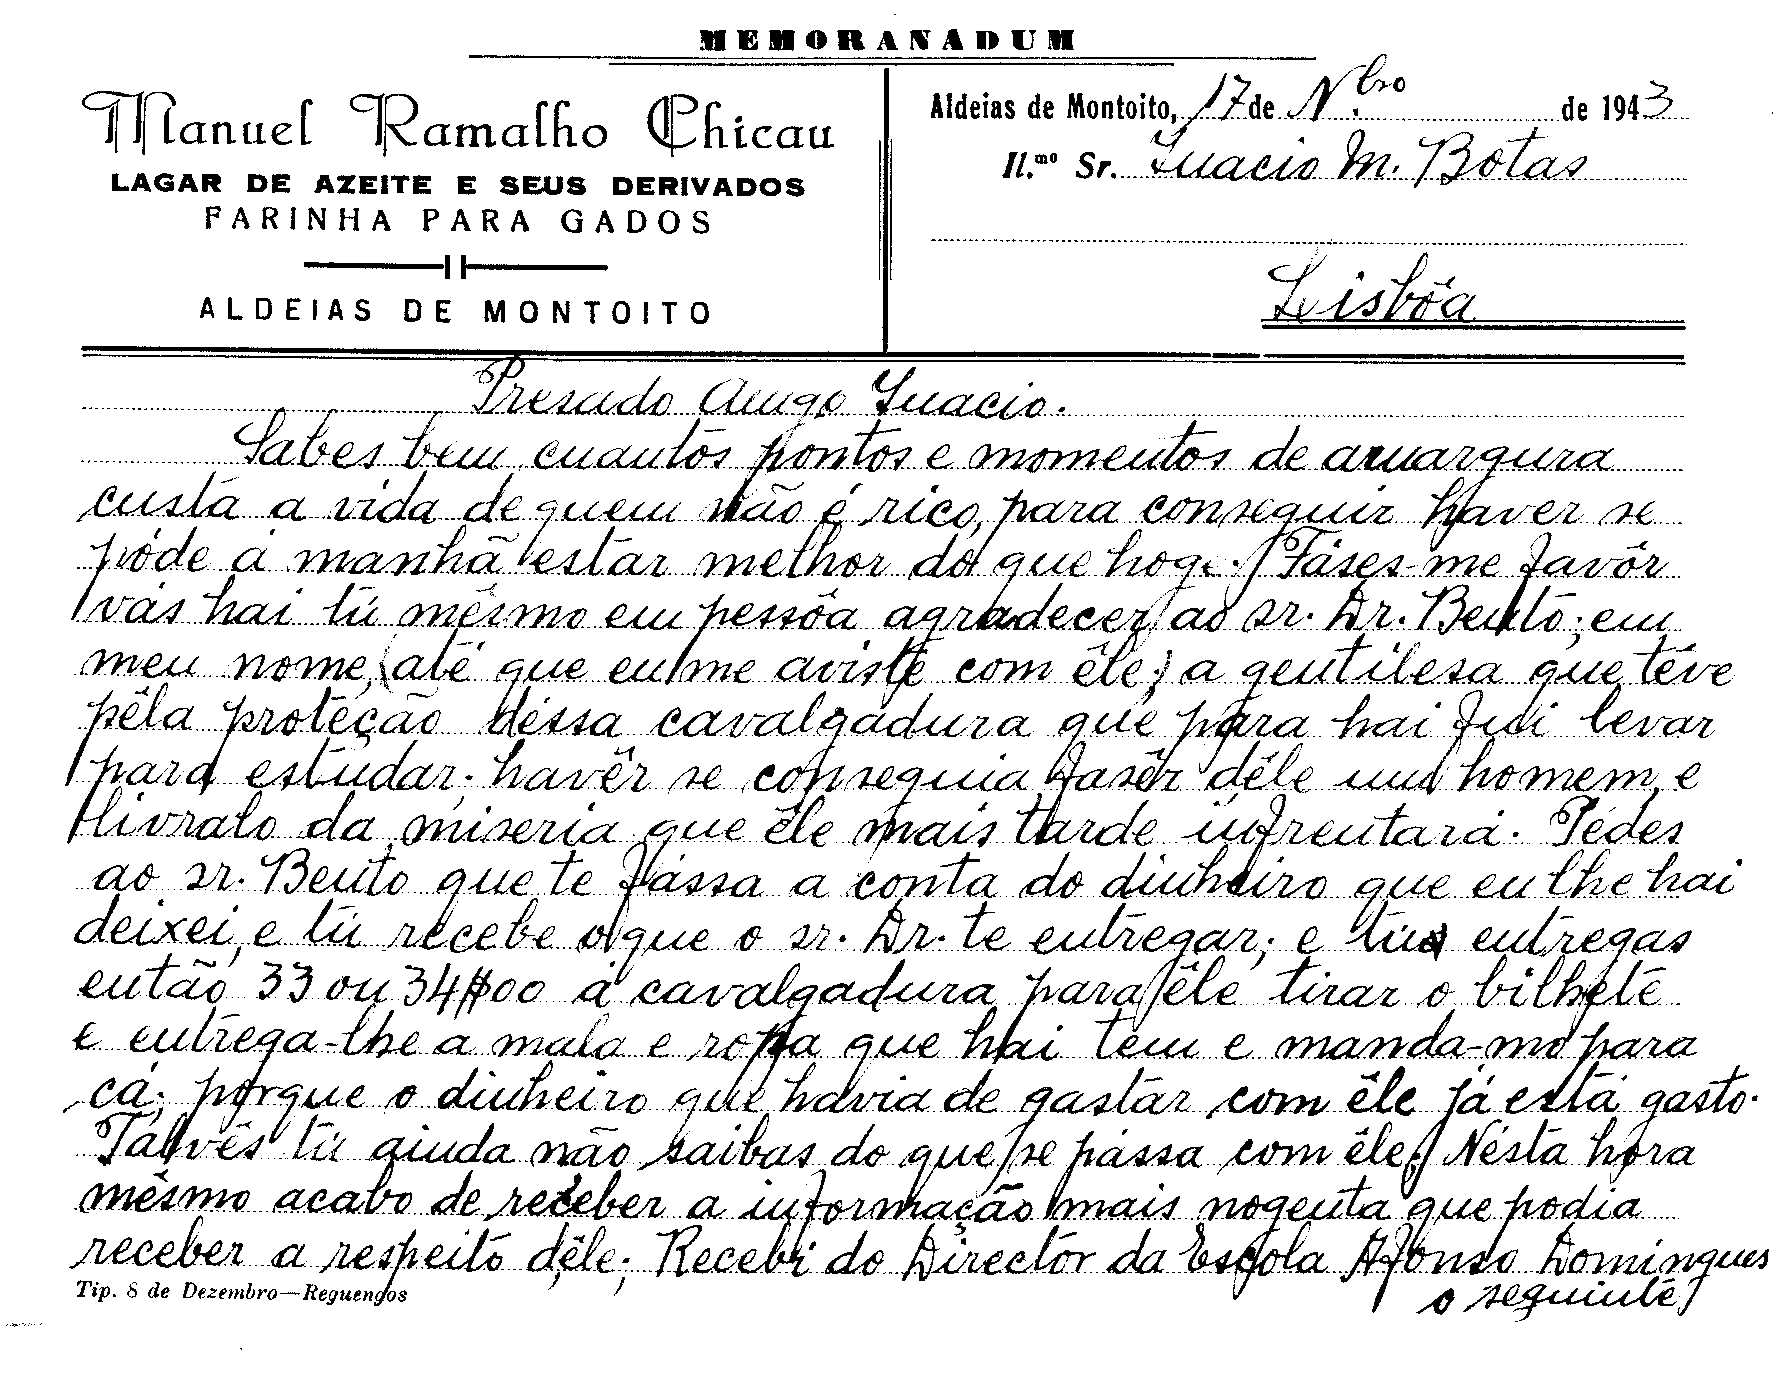 MEMORANADUM
Manuel Ramalho Chicau
LAGAR DE AZEITE E SEUS DERIVADOS
FARINHA PARA GADOS
ALDEIAS DE MONTOITO
Aldeias de Montoito, 17 de N.bro de 1943
Il.mo Sr. Inacio M. Botas
Lisbôa
Presado Amigo Inacio.
Sabes bem cuantos pontos e momentos de amargura
custa a vida de quem não é rico, para conseguir haver se
póde á manhã estar melhor do que hoge. Fáses-me favôr
vás hai tú mêsmo em pessôa agradecer ao sr. Dr. Bento; em
meu nome, (até que eu me aviste com êle; a gentilesa que têve
pêla proteção déssa cavalgadura que para hai fui levar
para estudar; havêr se conseguia fasêr dêle um homem, e
livralo da miseria que êle mais tarde infrentará. Pédes
ao sr. Bento que te fássa a conta do dinheiro que eu lhe hai
deixei, e tú recebe o que o sr. Dr. te entregar; e tú entregas
então 33 ou 34$00 á cavalgadura para êle tirar o bilhete
e entrega-lhe a mala e ropa que hai tem e manda-mo para
cá; porque o dinheiro que havia de gastár com êle já está gasto.
Talvês tú ainda não saibas do que se pássa com êle. Nésta hora
mêsmo acabo de receber a informação mais nogenta que podia
receber a respeito dêle; Recebi do Directôr da Escola Afonso Domingues
o seguinte
Tip. 8 de Dezembro—Reguengos